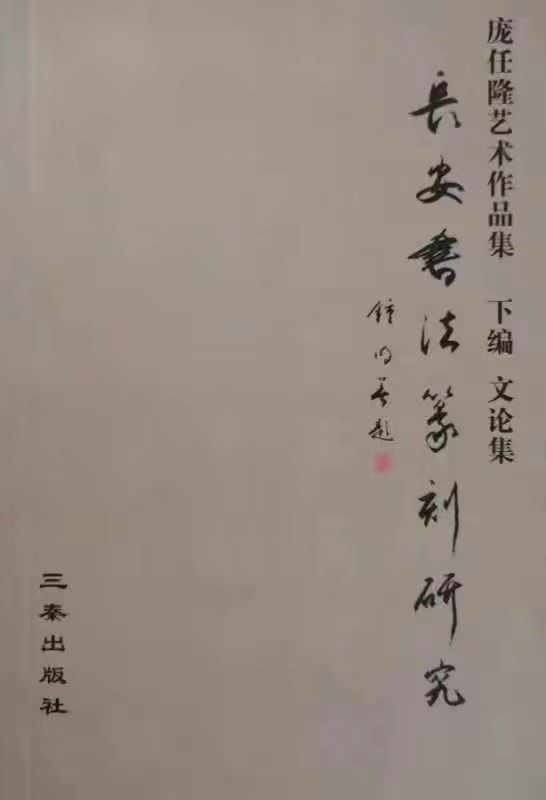 庞任隆艺术作品集 下编 文论集
長安書法篆刻研究
钟明善题
三秦出版社